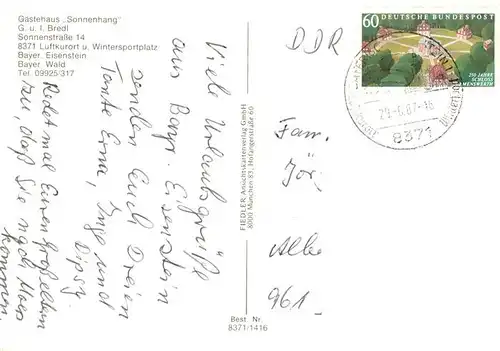 Gästehaus „Sonnenhang"
G. u. I. Bredl
Sonnenstraße 14
8371 Luftkurort u. Wintersportplatz
Bayer. Eisenstein
Bayer. Wald
Tel. 09925/317
Viele Urlaubsgrüße
aus Bayr. Eisenstein
senden Euch Dreien
Tante Erna, Inge und
Dipsy
Redet mal Euren Großeltern
zu, daß Sie nach
kommen.
FIEDLER Ansichtskartenverlag GmbH
8000 München 83, Hofangerstraße 60
Best. Nr.
8371/1416
60 DEUTSCHE BUNDESPOST
250 JAHRE
SCHLOSS
CLEMENSWERTH
8371
DDR
Fam.
Jör
Albe
961